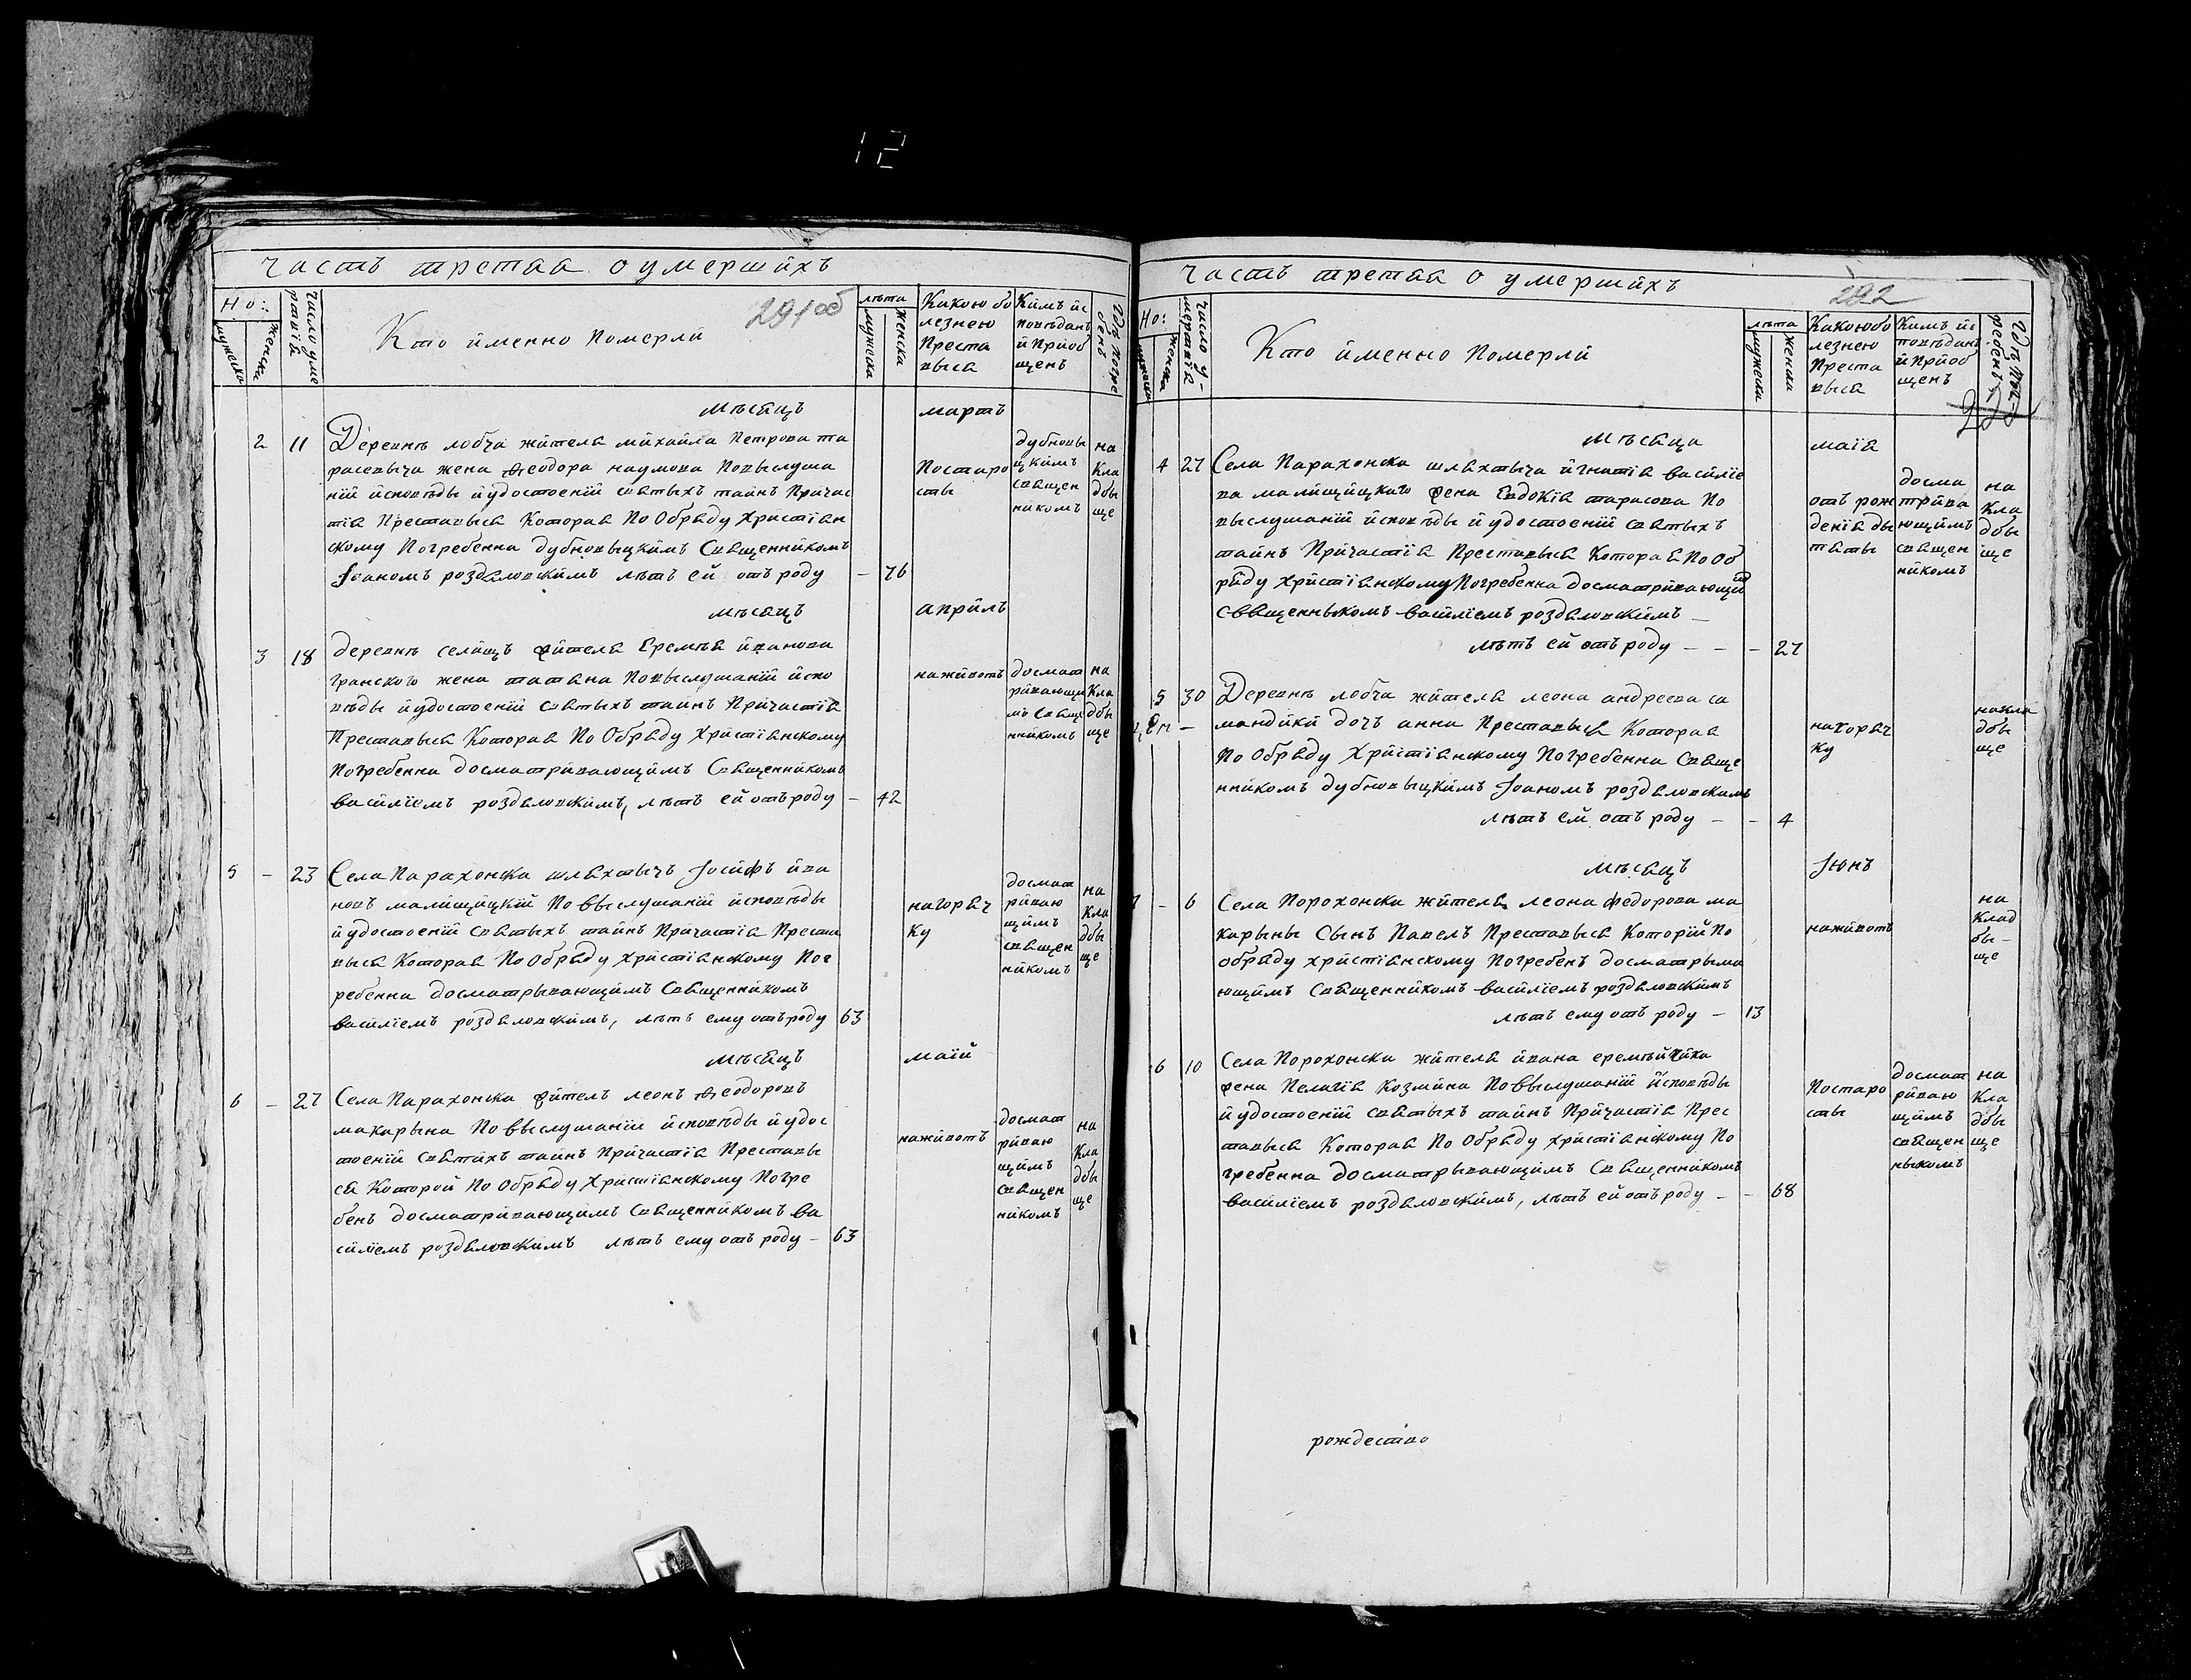 12
часть третая о умершихъ
291об
Но:
мужеска
женска
число умертвія
Кто именно померли
лѣта
мужеска
женска
Какою болезнею Преставыся
Кимъ исповѣданъ и Приобщенъ
Где погребенъ
мѣсяцъ
мартъ
2 11 Деревнѣ лобча жителя михайла Петрова та
расевыча жена Ѳеодора наумова По выслуша
ніи исповѣды и удостоеніи святыхъ таинъ Причас
тія Преставыся Которая По Обряду христіан
скому Погребенна дубновыцкимъ Священникомъ
Іоаномъ роздяловскимъ лѣтъ ей отъ роду - 76
По старо
сты
дубновы
цкимъ
священ
никомъ
на
Кла
дбы
ще
мѣсяцъ
апрйль
3 18 деревнѣ селищъ жителя Еремѣя иванова
гранского жена татяна По выслушаніи испо
вѣды и удостоеніи святыхъ таинъ Причастія
Преставыся Которая По Обряду христіанскому
Погребенна досматривающимъ Священникомъ
василіемъ роздяловскимъ, лѣтъ ей отъ роду - 42
на животъ
досмат
ривающи
мъ свяще
нникомъ
на
Кла
дбы
ще
5 - 23 Села Парахонска шляхтычъ Іосифъ ива
новъ малищицкій По выслушаніи исповѣды
и удостоеніи святыхъ таинъ Причастія Преста
выся Которая По Обряду христіанскому Пог
ребенна досматрывающимъ Священникомъ
василіемъ роздяловскимъ, лѣтъ ему отъ роду 63
на горяч
ку
досмат
риваю
щимъ
священ
никомъ
на
Кла
дбы
ще
мѣсяцъ
маій
6 - 27 Села Парахонска житель леонъ Ѳеодоровъ
макарына По выслушаніи исповѣды и удос
тоеніи святихъ таинъ Причастія Преставы
ся Которой По Обряду Христіанскому Погре
бенъ досматривающимъ Священникомъ ва
силіемъ роздяловскимъ лѣтъ ему отъ роду - 63
на животъ
досмат
риваю
щимъ
священ
никомъ
на
Кла
дбы
ще
часть третая о умершихъ
292
Но:
женска
число умертвія
Кто именно померли
лѣта
мужеска
женска
Какою болезнею Преставыся
Кимъ исповѣданъ и Приобщенъ
Где погребенъ
мѣсяца
маія
4 27 Села Парахонска шляхтыча игнатія василіе
ва малищицкаго жена Евдокія тарасова По
выслушаніи исповѣды и удостоеніи святыхъ
таинъ Причастія Преставыся Которая По Об
ряду христіанскому Погребенна досматривающим
священныкомъ василіемъ роздяловскимъ -
лѣтъ ей отъ роду - - - 27
отъ рож
денія ды
тяты
досма
трива
ющимъ
священ
никомъ
на
Кла
дбы
ще
5 30 Деревнѣ лобча жителя леона андреева са
мандики дочъ анна Преставыся Которая
По Обряду Христіанскому Погребенна Свяще
нникомъ дубновыцкимъ Іоаномъ роздяловскимъ
лѣтъ ей отъ роду - - 4
на горяч
ку
на кла
дбы
ще
мѣсяцъ
Іюнъ
- 6 Села Порохонска жителя леона федорова ма
карыны Сынъ Павелъ Преставыся Который По
обряду христіанскому Погребенъ досматрыва
ющимъ Священникомъ василіемъ роздяловскимъ
лѣтъ ему отъ роду - 13
на животъ
на
Клад
бы-
ще
6 10 Села Порохонска жителя ивана еремѣйчика
жена Пелагія Козмина По выслушаніи исповѣды
и удостоеніи святыхъ таинъ Причастія Прес
тавыся Которая По Обряду христіанскому По
гребенна досматрывающимъ Священникомъ
василіемъ роздяловскимъ, лѣтъ ей отъ роду - - 68
По старо
сты
досмат
риваю
щимъ
священ
ныкомъ
на
Кла
дбы
ще
рождество